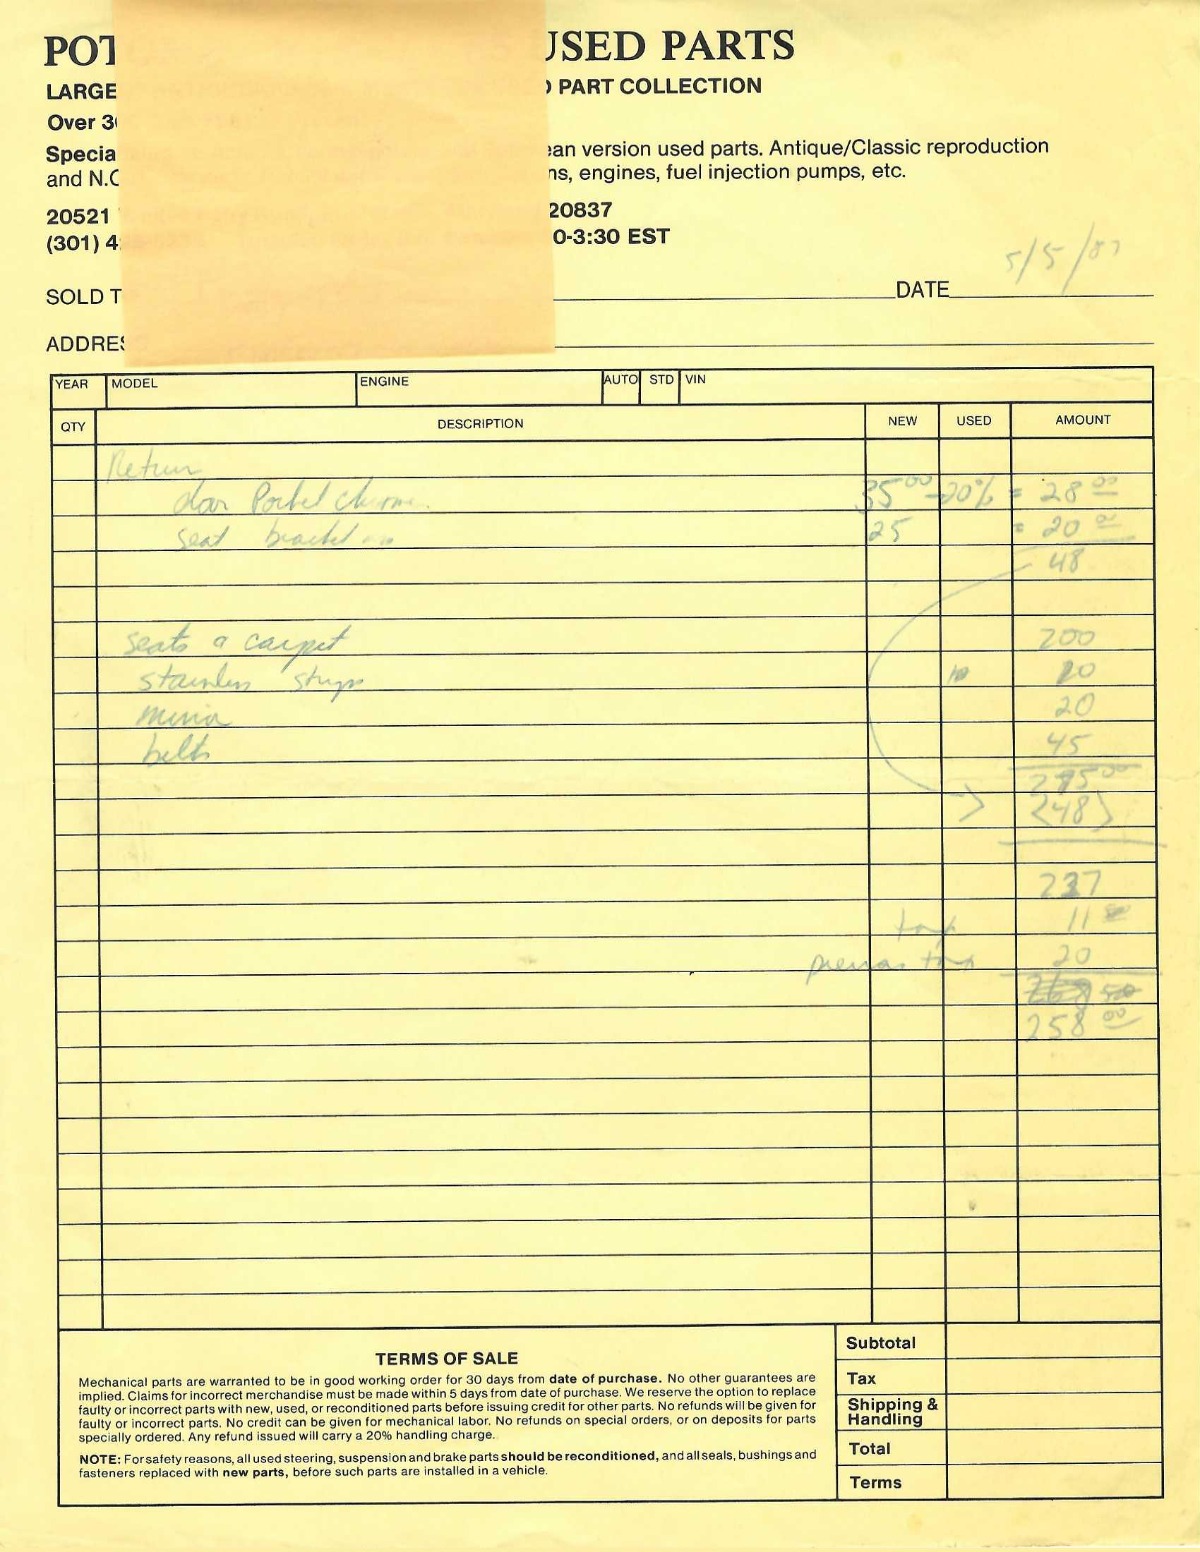 POT USED PARTS
LARGE PART COLLECTION
Over 3
Specia ean version used parts. Antique/Classic reproduction
and N.O ns, engines, fuel injection pumps, etc.
20521 20837
(301) 4 0-3:30 EST
SOLD T DATE 5/5/87
ADDRES
YEAR MODEL ENGINE AUTO STD VIN
QTY DESCRIPTION NEW USED AMOUNT
Return
35 00 -20% = 28 00
seat 25 = 20 00
48
seats a carpet 200
stainless strips 10 20
20
belts 45
00
<48>
237
tax 11
tax 20
258 00
Subtotal
Tax
Shipping &
Handling
Total
Terms
TERMS OF SALE
Mechanical parts are warranted to be in good working order for 30 days from date of purchase. No other guarantees are
implied. Claims for incorrect merchandise must be made within 5 days from date of purchase. We reserve the option to replace
faulty or incorrect parts with new, used, or reconditioned parts before issuing credit for other parts. No refunds will be given for
faulty or incorrect parts. No credit can be given for mechanical labor. No refunds on special orders, or on deposits for parts
specially ordered. Any refund issued will carry a 20% handling charge.
NOTE: For safety reasons, all used steering, suspension and brake parts should be reconditioned, and all seals, bushings and
fasteners replaced with new parts, before such parts are installed in a vehicle.